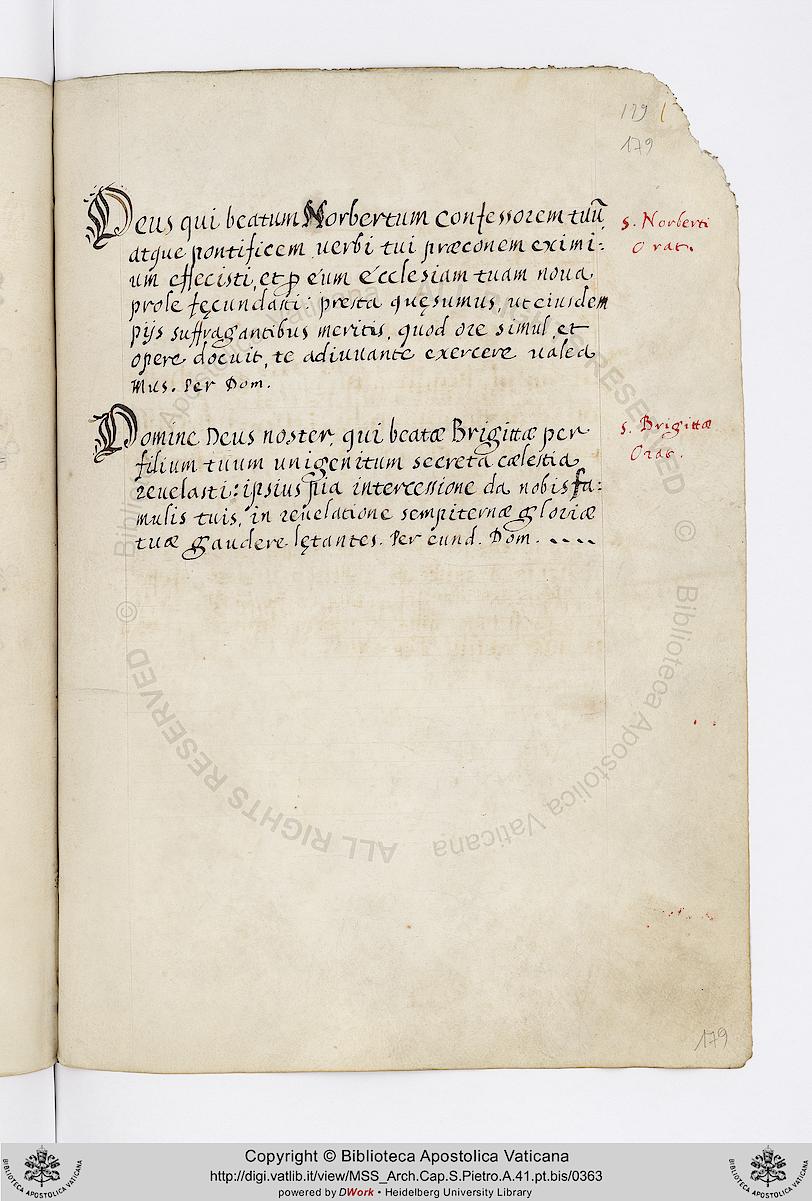 179 1
179
Deus qui beatum Norbertum confessorem tuū
atque pontificem verbi tui præconem eximi-
um effecisti, et ꝑ eum Ecclesiam tuam noua
prole fęcundasti: presta quęsumus, ut eiusdem
pijs suffragantibus meritis, quod ore simul, et
opere docuit, te adiuuante exercere ualea
mus. Per Dom.
S. Norberti
Orat.
Domine Deus noster, qui beatæ Brigittæ per
filium tuum unigenitum secreta cælestia
reuelasti: ipsius pia intercessione da nobis fa:
mulis tuis, in reuelatione sempiternæ gloriæ
tuæ gaudere lętantes. Per eund. Dom. ....
S. Brigittæ
Orat.
179
© Biblioteca Apostolica Vaticana ALL RIGHTS RESERVED © Biblioteca Apostolica Vaticana ALL RIGHTS RESERVED
BIBLIOTECA APOSTOLICA VATICANA
Copyright © Biblioteca Apostolica Vaticana
http://digi.vatlib.it/view/MSS_Arch.Cap.S.Pietro.A.41.pt.bis/0363
powered by DWork • Heidelberg University Library
BIBLIOTECA APOSTOLICA VATICANA